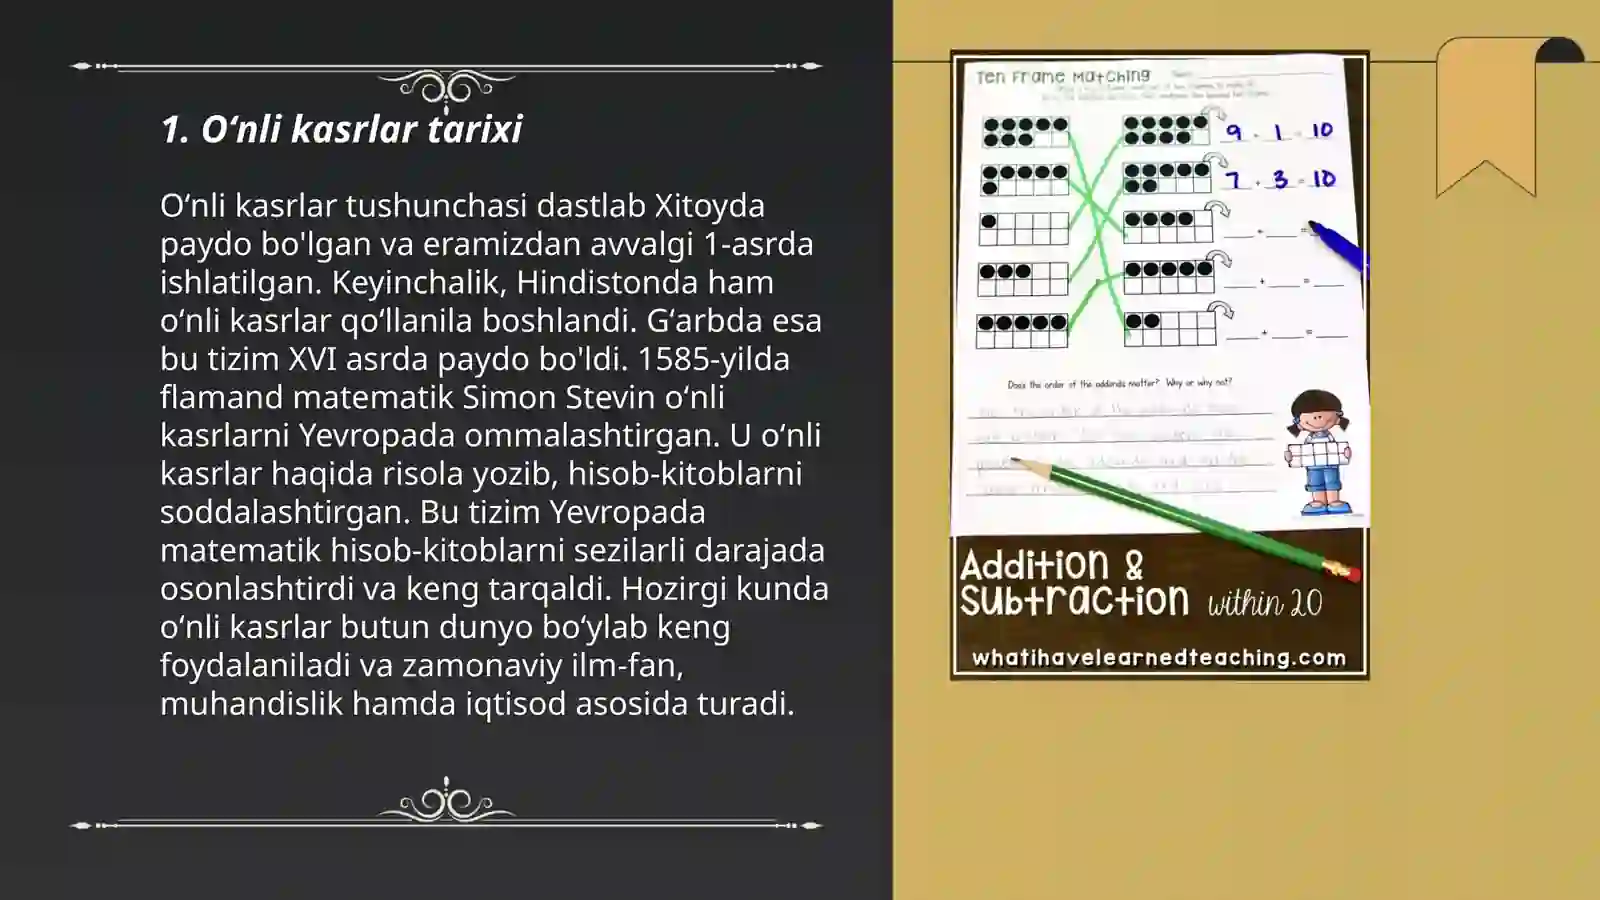 1. Oʻnli kasrlar tarixi
Oʻnli kasrlar tushunchasi dastlab Xitoyda
paydo bo'lgan va eramizdan avvalgi 1-asrda
ishlatilgan. Keyinchalik, Hindistonda ham
oʻnli kasrlar qoʻllanila boshlandi. Gʻarbda esa
bu tizim XVI asrda paydo bo'ldi. 1585-yilda
flamand matematik Simon Stevin oʻnli
kasrlarni Yevropada ommalashtirgan. U oʻnli
kasrlar haqida risola yozib, hisob-kitoblarni
soddalashtirgan. Bu tizim Yevropada
matematik hisob-kitoblarni sezilarli darajada
osonlashtirdi va keng tarqaldi. Hozirgi kunda
oʻnli kasrlar butun dunyo boʻylab keng
foydalaniladi va zamonaviy ilm-fan,
muhandislik hamda iqtisod asosida turadi.
Ten Frame Matching
9 + 1 = 10
7 + 3 = 10
Does the order of the addends matter? Why or why not?
Addition &
Subtraction within 20
whatihavelearnedteaching.com